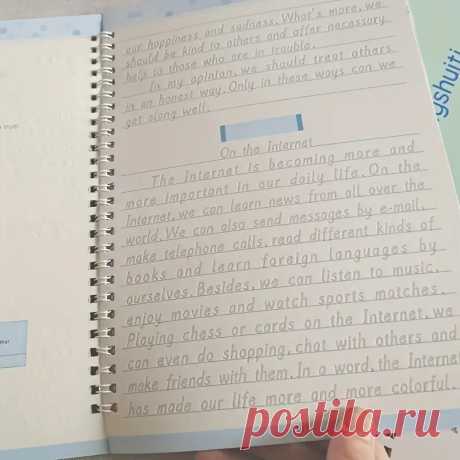 our happiness and sadness. What's more, we
should be kind to others and offer necessary
help to those who are in trouble.
In my opinion, we should treat others
in an honest way. Only in these ways can we
get along well.
On the Internet
The Internet is becoming more and
more important in our daily life. On the
Internet, we can learn news from all over the
world. We can also send messages by e-mail,
make telephone calls, read different kinds of
books and learn foreign languages by
ourselves. Besides, we can listen to music,
enjoy movies and watch sports matches.
Playing chess or cards on the Internet, we
can even do shopping, chat with others and
make friends with them. In a word, the Internet
has made our life more and more colorful.
gshuiti
postila.ru